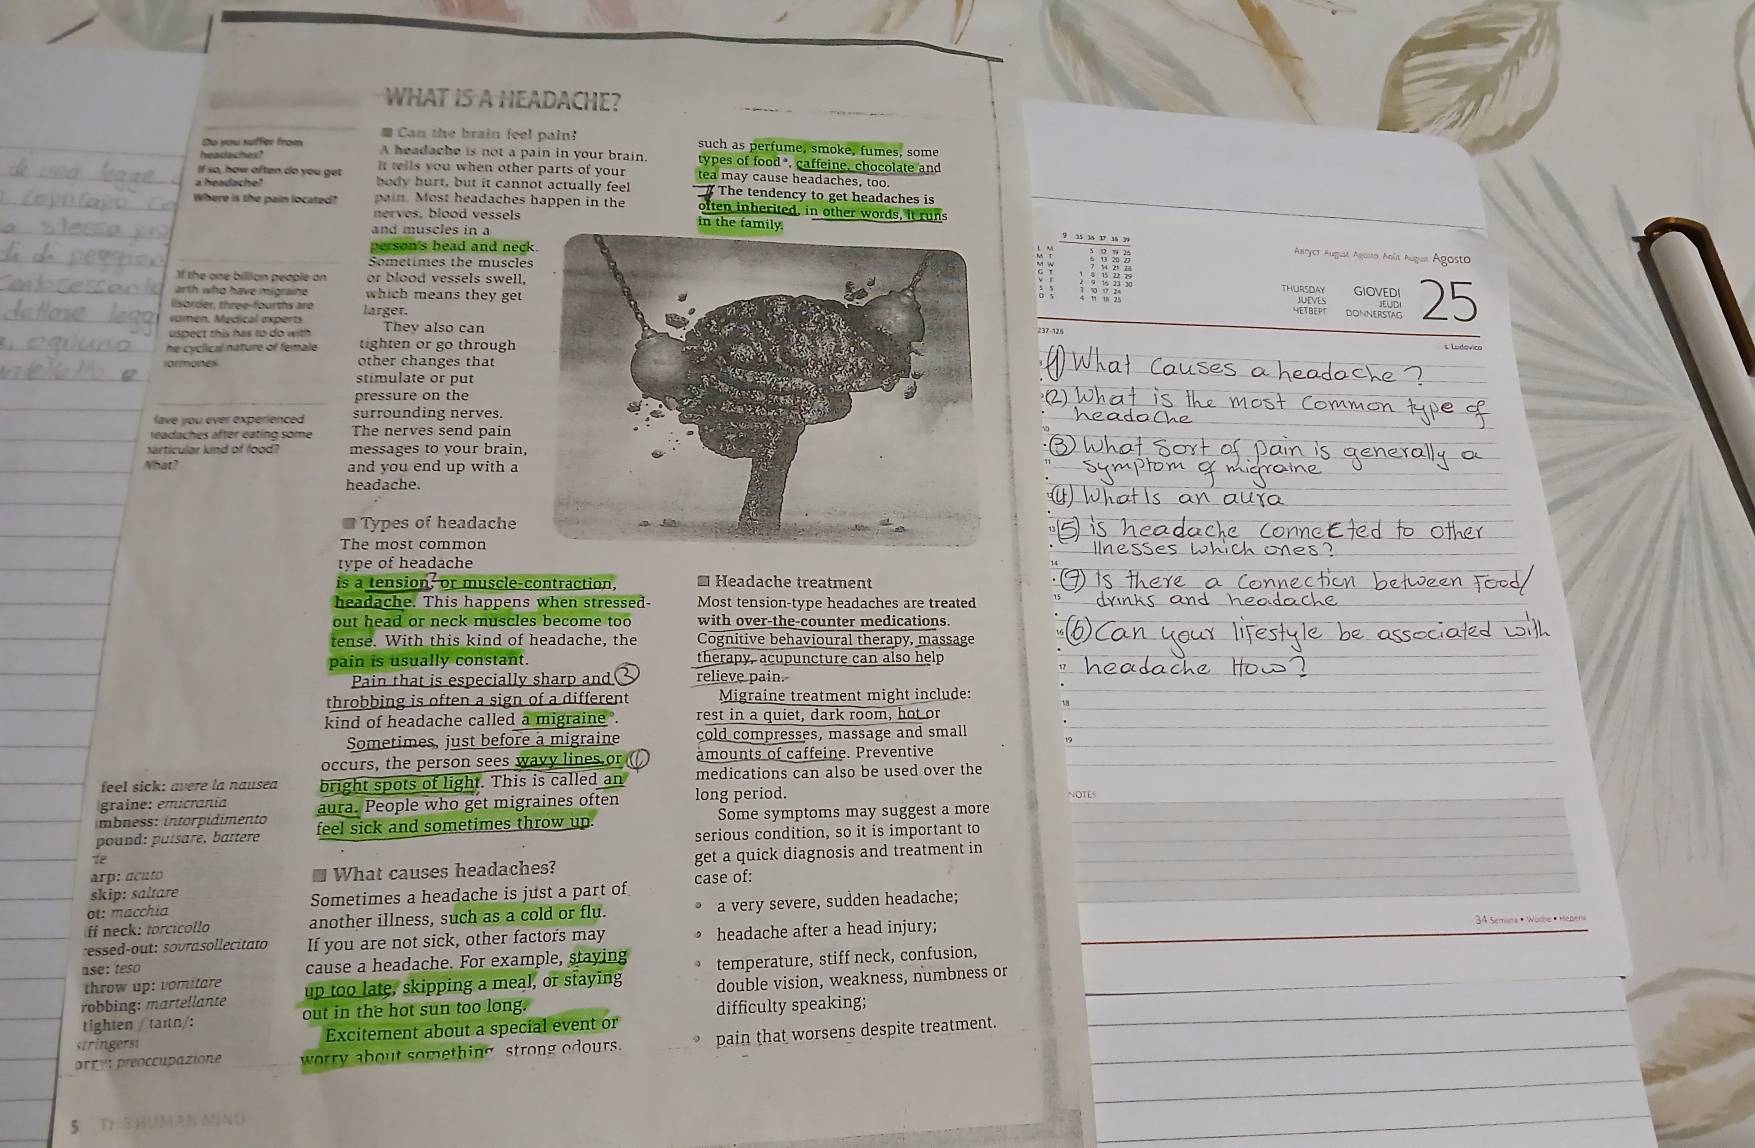 WHAT IS A HEADACHE?
Do you suffer from
headaches?
If so, how often do you get
a headache?
Where is the pain located?
If the one billion people on
arth who have migraine
disorder, three-fourths are
women. Medical experts
uspect this has to do with
he cyclical nature of female
hormones.
Have you ever experienced
headaches after eating some
particular kind of food?
What?
Can the brain feel pain?
A headache is not a pain in your brain.
It tells you when other parts of your
body hurt, but it cannot actually feel
pain. Most headaches happen in the
nerves, blood vessels
and muscles in a
person's head and neck.
Sometimes the muscles
or blood vessels swell,
which means they get
larger.
They also can
tighten or go through
other changes that
stimulate or put
pressure on the
surrounding nerves.
The nerves send pain
messages to your brain,
and you end up with a
headache.
Types of headache
The most common
type of headache
is a tension, or muscle-contraction,
headache. This happens when stressed-
out head or neck muscles become too
tense. With this kind of headache, the
pain is usually constant.
Pain that is especially sharp and
throbbing is often a sign of a different
kind of headache called a migraine°.
Sometimes, just before a migraine
occurs, the person sees wavy lines or
bright spots of light. This is called an
aura. People who get migraines often
feel sick and sometimes throw up.
What causes headaches?
Sometimes a headache is just a part of
another illness, such as a cold or flu.
If you are not sick, other factors may
cause a headache. For example, staying
up too late, skipping a meal, or staying
out in the hot sun too long.
Excitement about a special event or
worry about something, strong odours,
such as perfume, smoke, fumes, some
types of food°, caffeine, chocolate and
tea may cause headaches, too.
The tendency to get headaches is
often inherited, in other words, it runs
in the family.
Headache treatment
Most tension-type headaches are treated
with over-the-counter medications.
Cognitive behavioural therapy, massage
therapy, acupuncture can also help
relieve pain.
Migraine treatment might include:
rest in a quiet, dark room, hot or
cold compresses, massage and small
amounts of caffeine. Preventive
medications can also be used over the
long period.
Some symptoms may suggest a more
serious condition, so it is important to
get a quick diagnosis and treatment in
case of:
a very severe, sudden headache;
headache after a head injury;
temperature, stiff neck, confusion,
double vision, weakness, numbness or
difficulty speaking;
pain that worsens despite treatment.
feel sick: avere la nausea
igraine: emicrania
mbness: intorpidimento
pound: pulsare, battere
te
arp: acuto
skip: saltare
ot: macchia
iff neck: torcicollo
ressed-out: sovrasollecitato
nse: teso
throw up: vomitare
robbing: martellante
tighten /taɪtn/:
stringersi
orry: preoccupazione
5 THE HUMAN MIND
Август August Agosto Août August Agosto
THURSDAY GIOVEDI
JUEVES JEUDI
ЧЕТВЕРГ DONNERSTAG
25
237-128
s. Ludovico
(1) What causes a headache?
(2) What is the most common type of
headache
(3) What sort of pain is generally a
symptom of migraine
(4) What is an aura
(5) is headache connected to other
llnesses which ones?
(7) is there a connection between Food/
drinks and headache
(6) Can your lifestyle be associated with
headache How?
NOTES
34